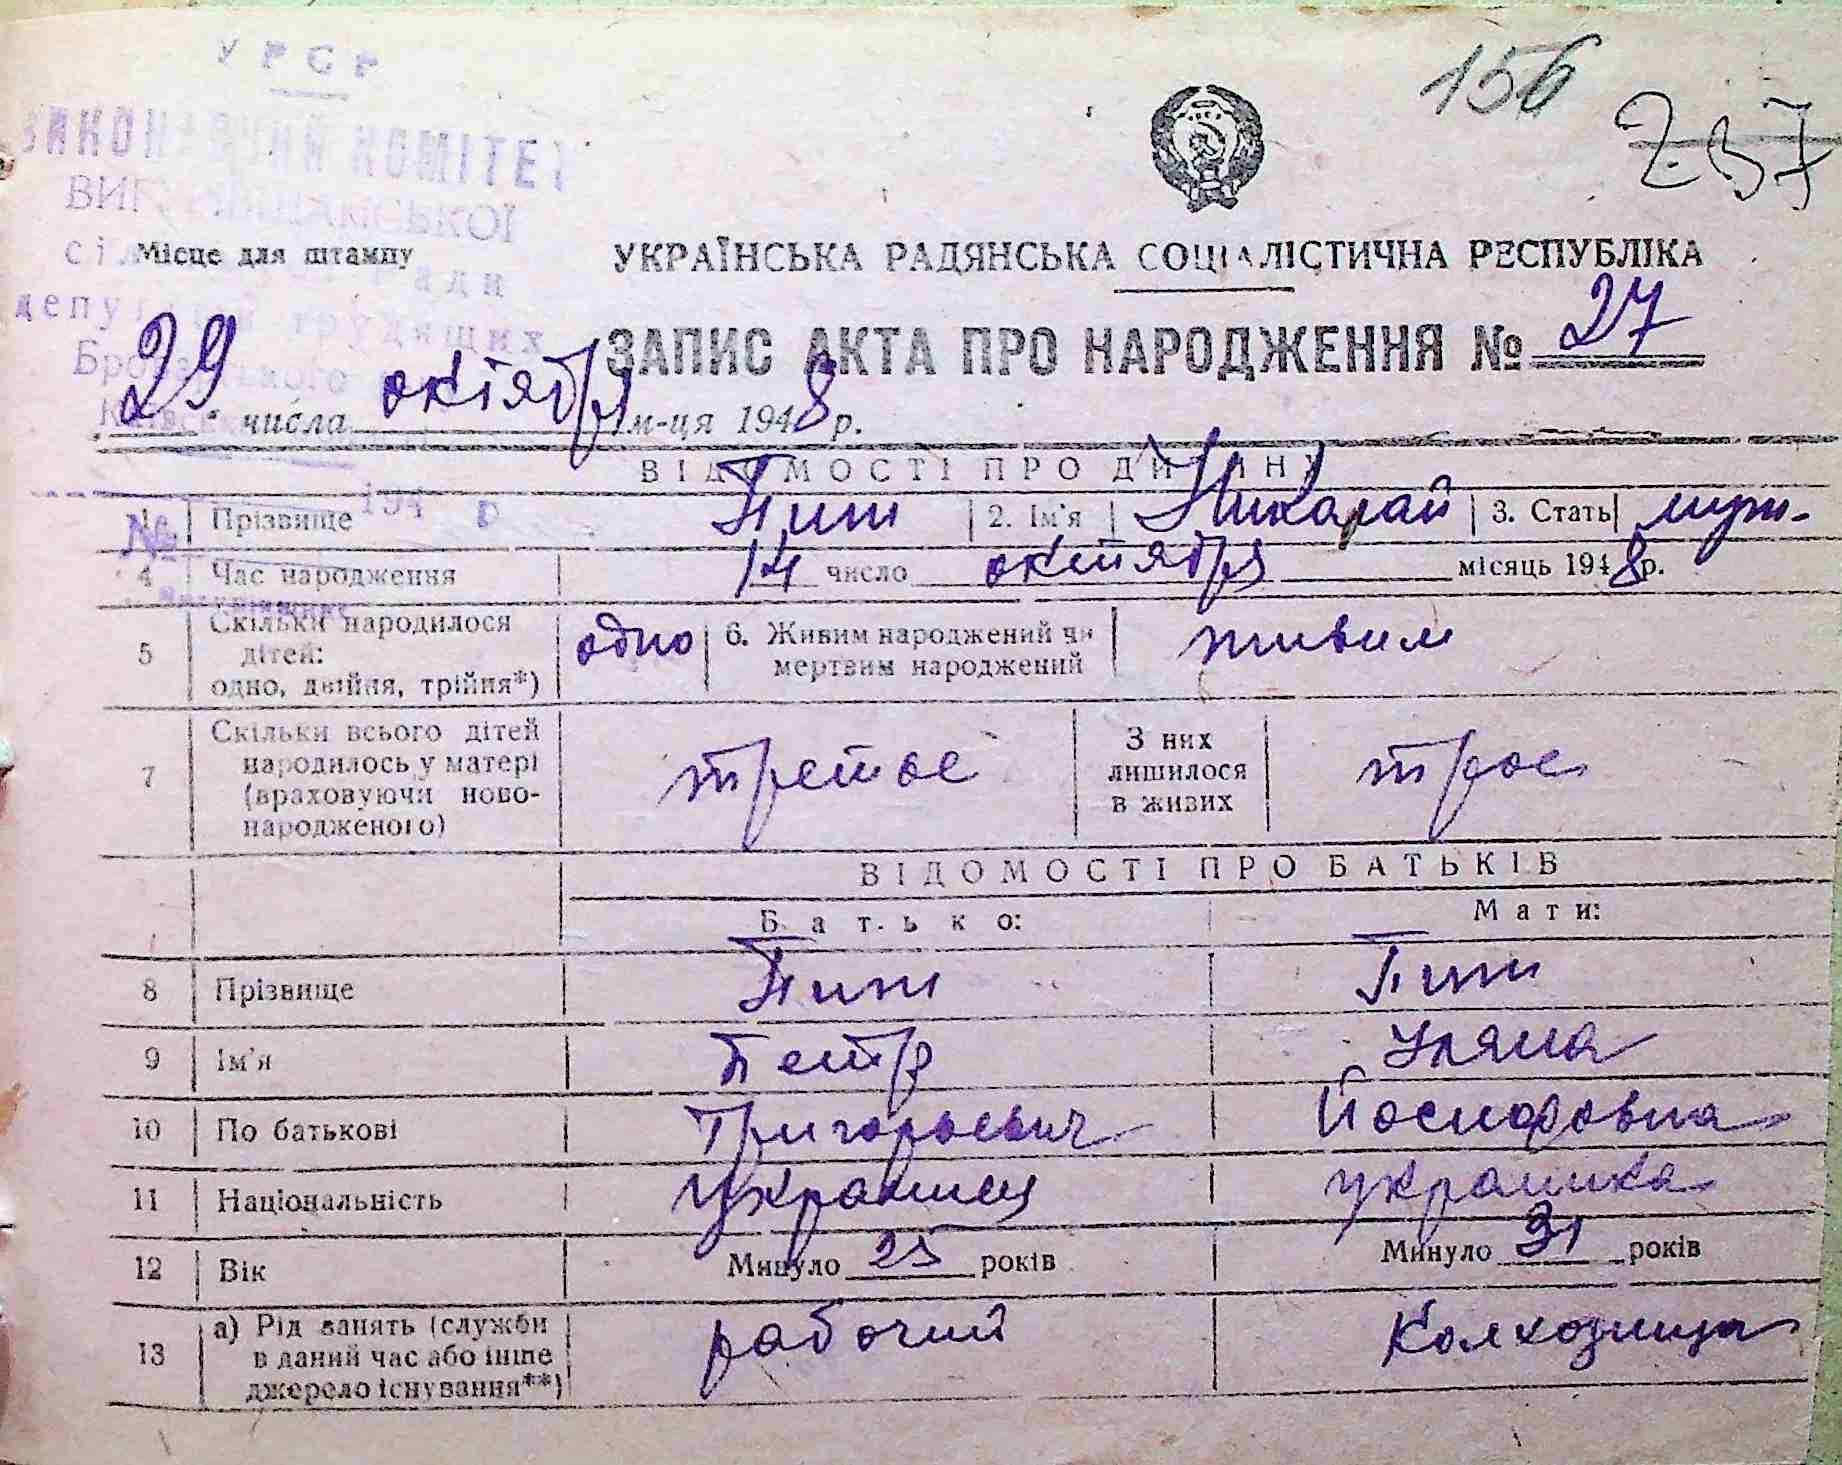 УРСР
156
ВИКОНАВЧИЙ КОМІТЕТ
257
Місце для штампу
УКРАЇНСЬКА РАДЯНСЬКА СОЦІАЛІСТИЧНА РЕСПУБЛІКА
депутатів трудящих
ЗАПИС АКТА ПРО НАРОДЖЕННЯ № 27
29 числа октября м-ця 1948 р.
ВІДОМОСТІ ПРО ДИТИНУ
194 р
№
1 Прізвище Пиж 2. Ім'я Николай 3. Стать муж.
4 Час народження 14 число октября місяць 1948 р.
5 Скільки народилося дітей: одно, двійня, трійня*) одно 6. Живим народжений чи мертвим народжений живим
7 Скільки всього дітей народилось у матері (враховуючи новонародженого) третье З них лишилося в живих трое
ВІДОМОСТІ ПРО БАТЬКІВ
Батько: Мати:
8 Прізвище Пиж Пиж
9 Ім'я Петр Уляна
10 По батькові Григорьевич Йосифовна
11 Національність украинец украинка
12 Вік Минуло 25 років Минуло 31 років
13 а) Рід занять (служби в даний час або інше джерело існування**) рабочий Колхозница